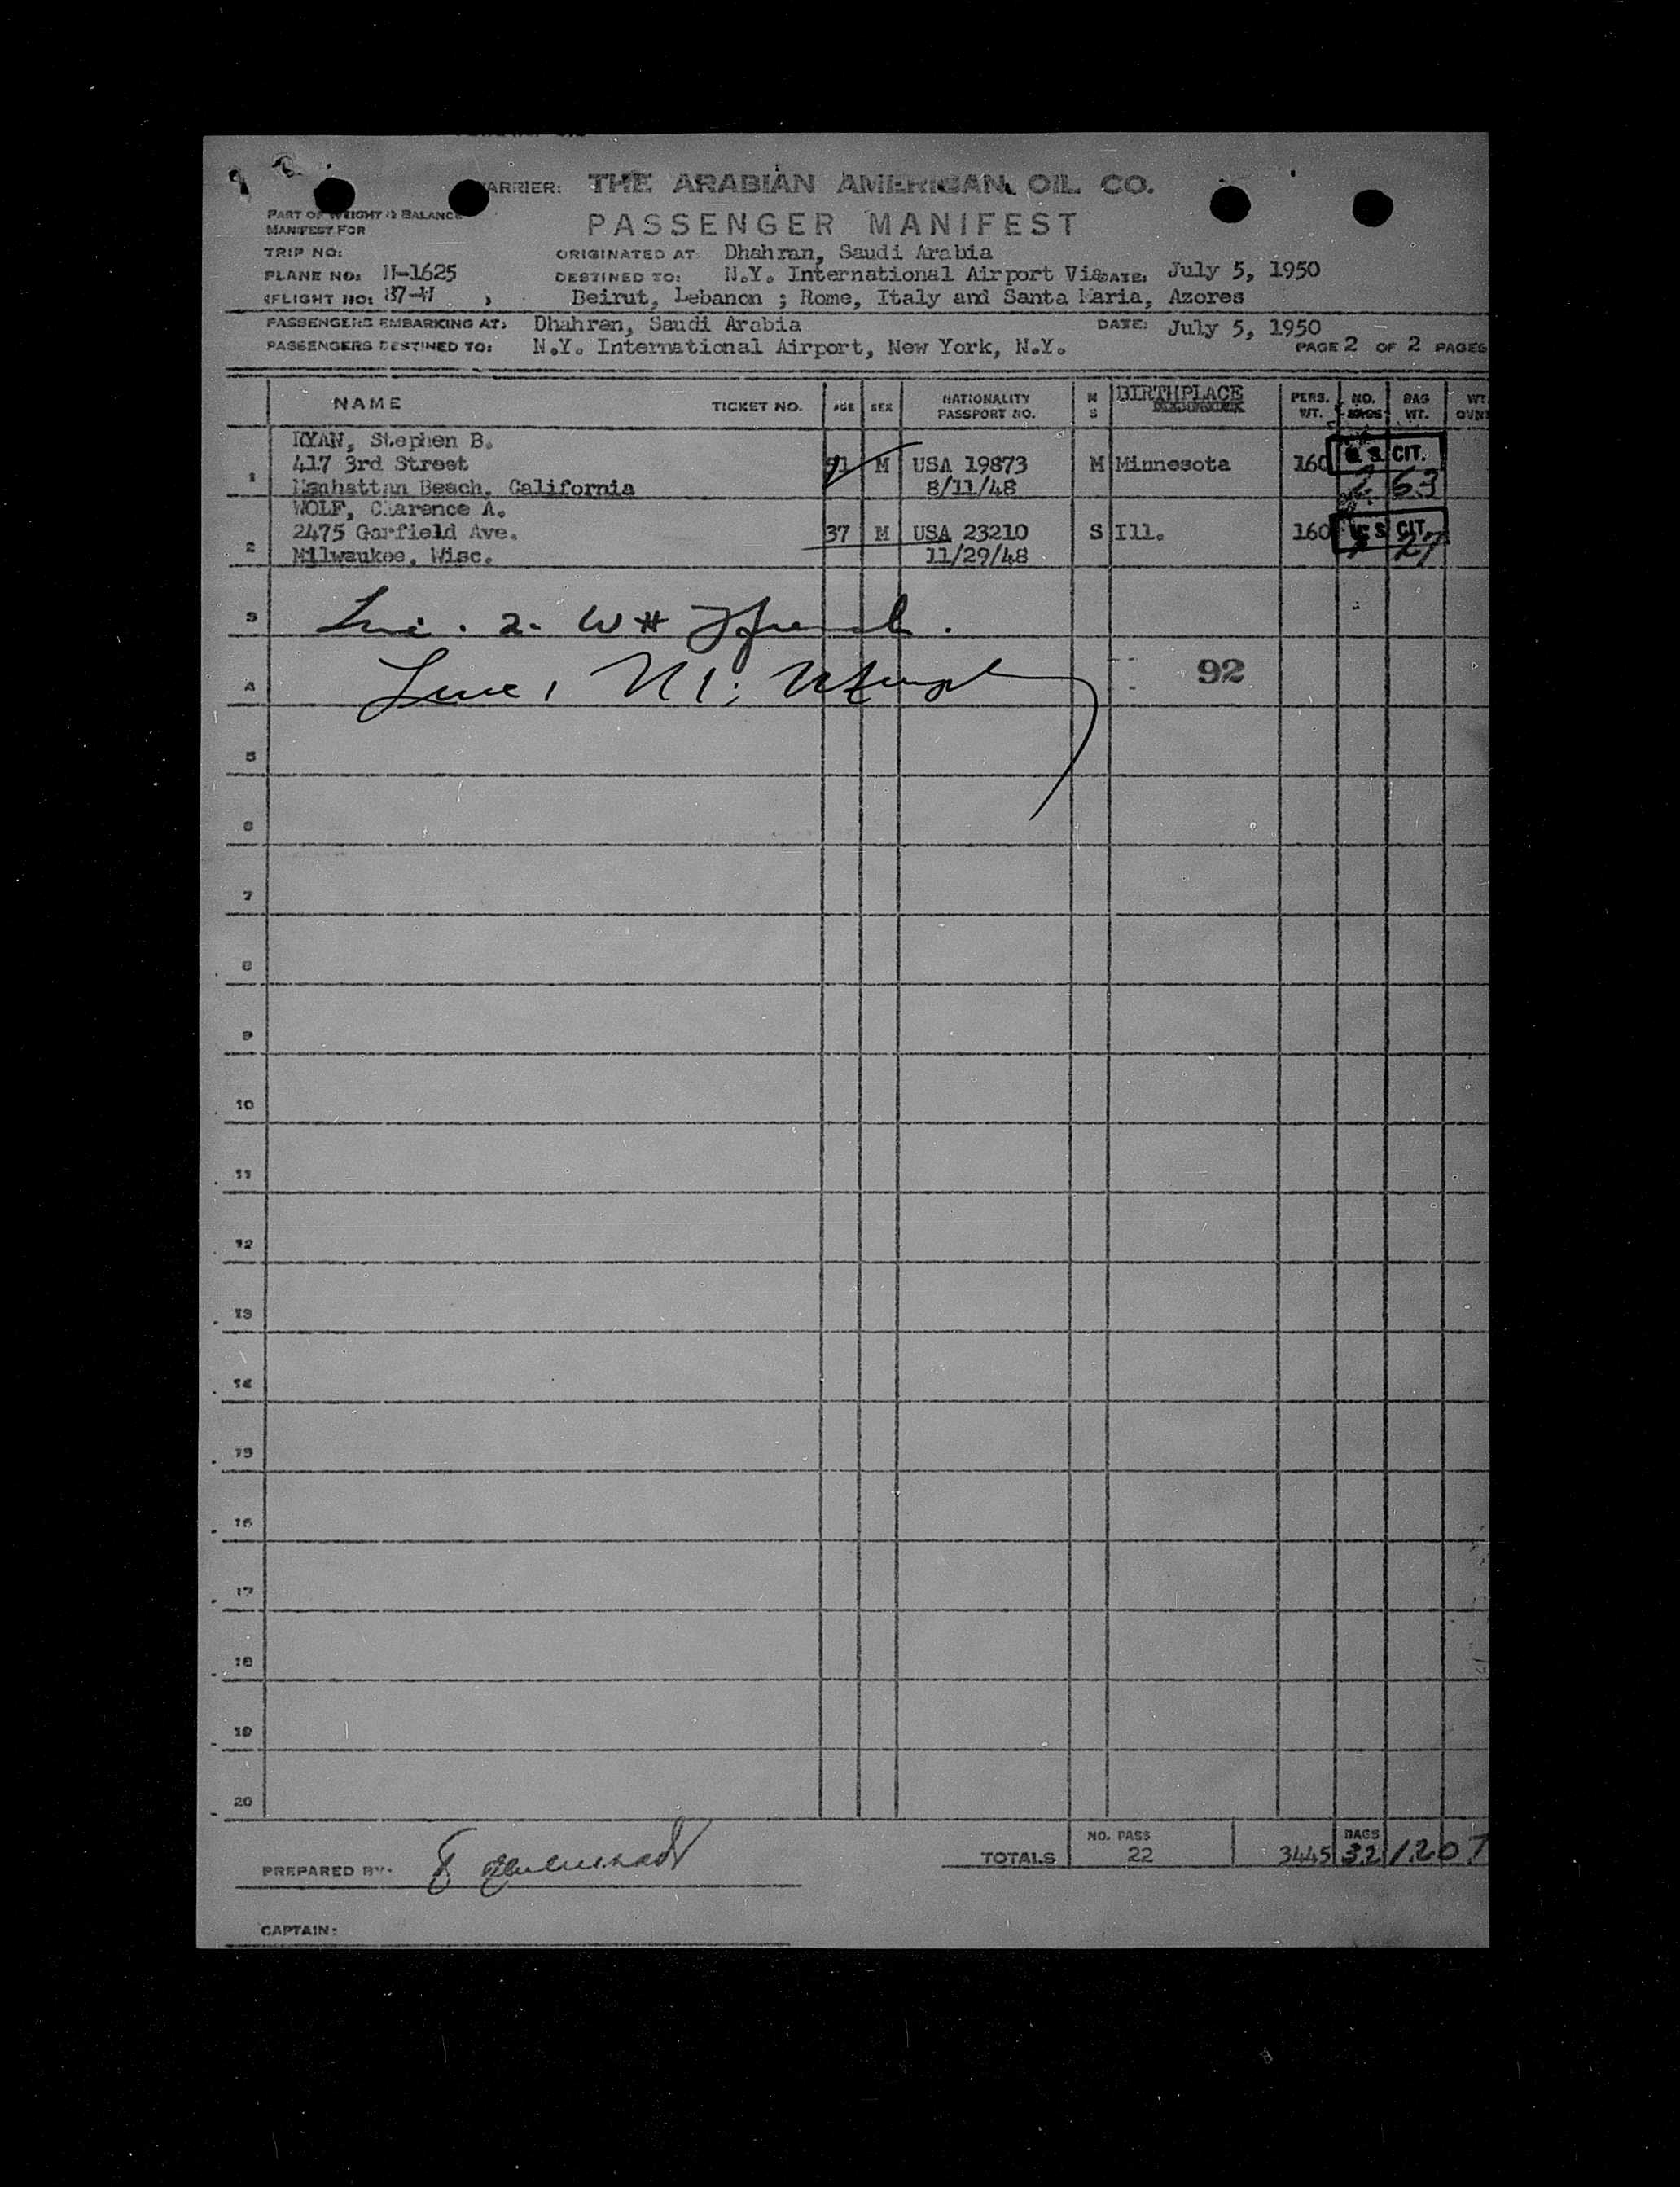 CARRIER: THE ARABIAN AMERICAN OIL CO.
PART OF WEIGHT & BALANCE
MANIFEST FOR
PASSENGER MANIFEST
TRIP NO:
ORIGINATED AT Dhahran, Saudi Arabia
PLANE NO: N-1625 DESTINED TO: N.Y. International Airport Via DATE: July 5, 1950
(FLIGHT NO: 87-W ) Beirut, Lebanon ; Rome, Italy and Santa Maria, Azores
PASSENGERS EMBARKING AT: Dhahran, Saudi Arabia DATE: July 5, 1950
PASSENGERS DESTINED TO: N.Y. International Airport, New York, N.Y. PAGE 2 OF 2 PAGES
NAME TICKET NO. AGE SEX NATIONALITY PASSPORT NO. M S BIRTHPLACE PERS. WT. NO. BAGS BAG WT. WT.
RYAN, Stephen B.
1 417 3rd Street M USA 19873 M Minnesota 160 U.S. CIT.
Manhattan Beach, California 8/11/48 2 53
WOLF, Clarence A.
2 2475 Garfield Ave. 37 M USA 23210 S Ill. 160 U S CIT. 27
Milwaukee, Wisc. 11/29/48
3 2.
4 92
5
6
7
8
9
10
11
12
13
14
15
16
17
18
19
20
PREPARED BY:
TOTALS NO. PASS 22 3445 BAGS 32 1207
CAPTAIN: